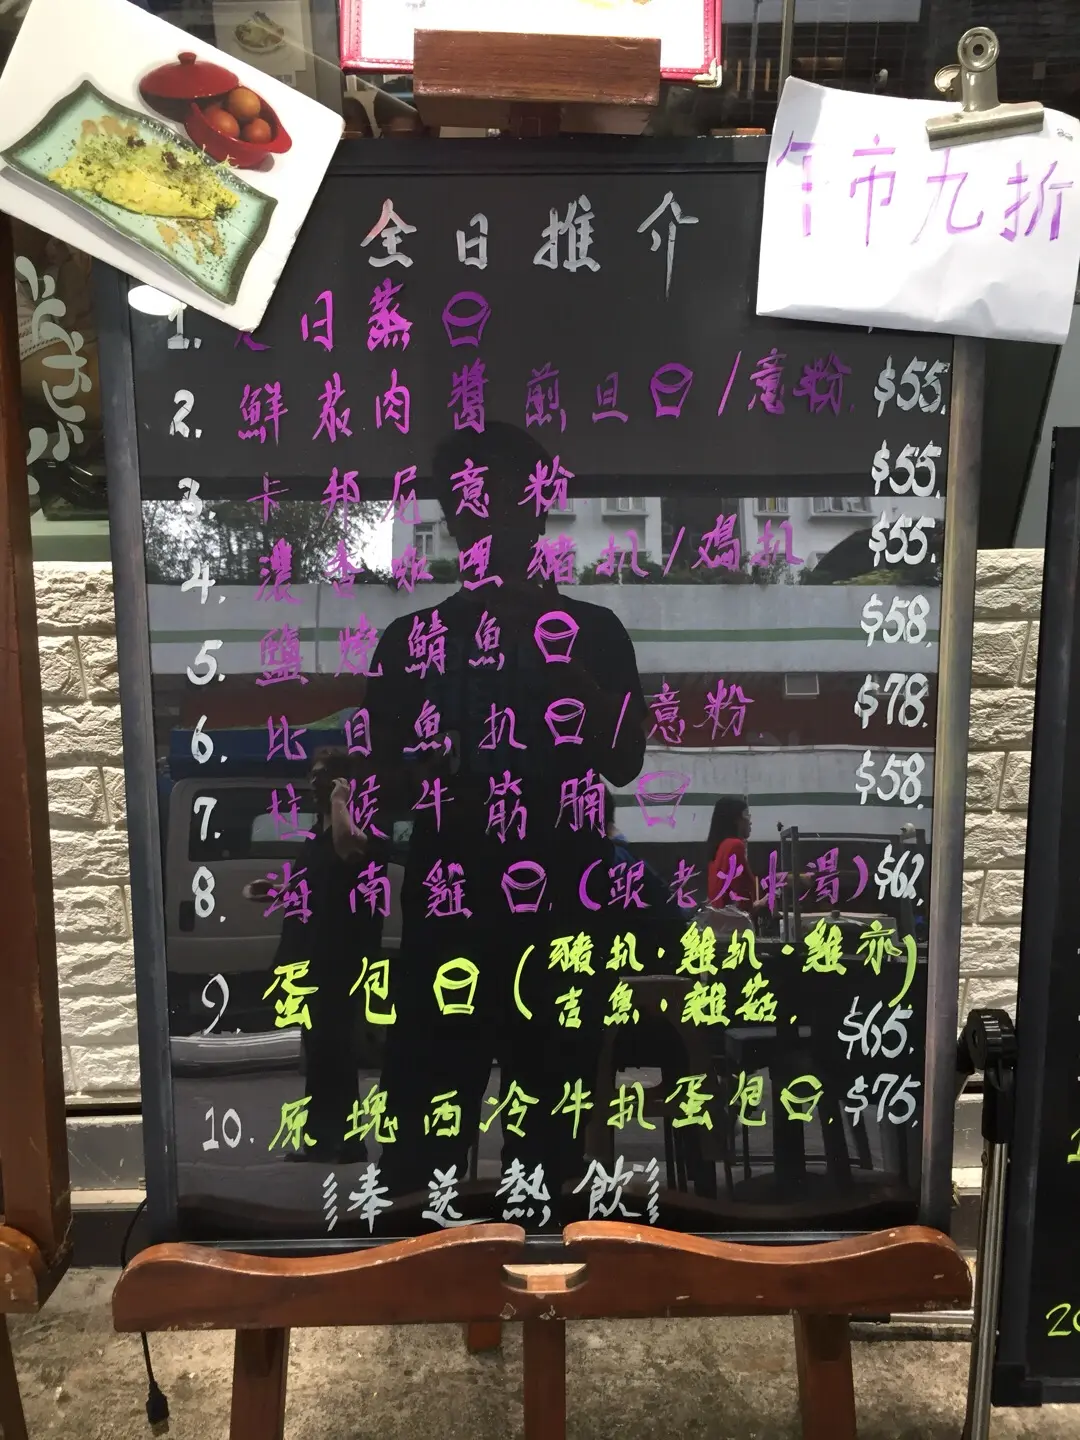 午市九折
全日推介
1. 日蒸
2. 鮮肉醬煎旦/意粉. $55.
3. 卡邦尼意粉 $55.
4. 濃香咖哩豬扒/鷄扒 $55.
5. 鹽燒鯖魚 $58.
6. 比目魚扒/意粉 $78.
7. 柱候牛筋腩 $58.
8. 海南雞.(跟老火中湯) $62.
9. 蛋包 (豬扒·雞扒·雞亦)
吉魚·雜菇.
$65.
10. 原塊西冷牛扒蛋包. $75.
奉送熱飲